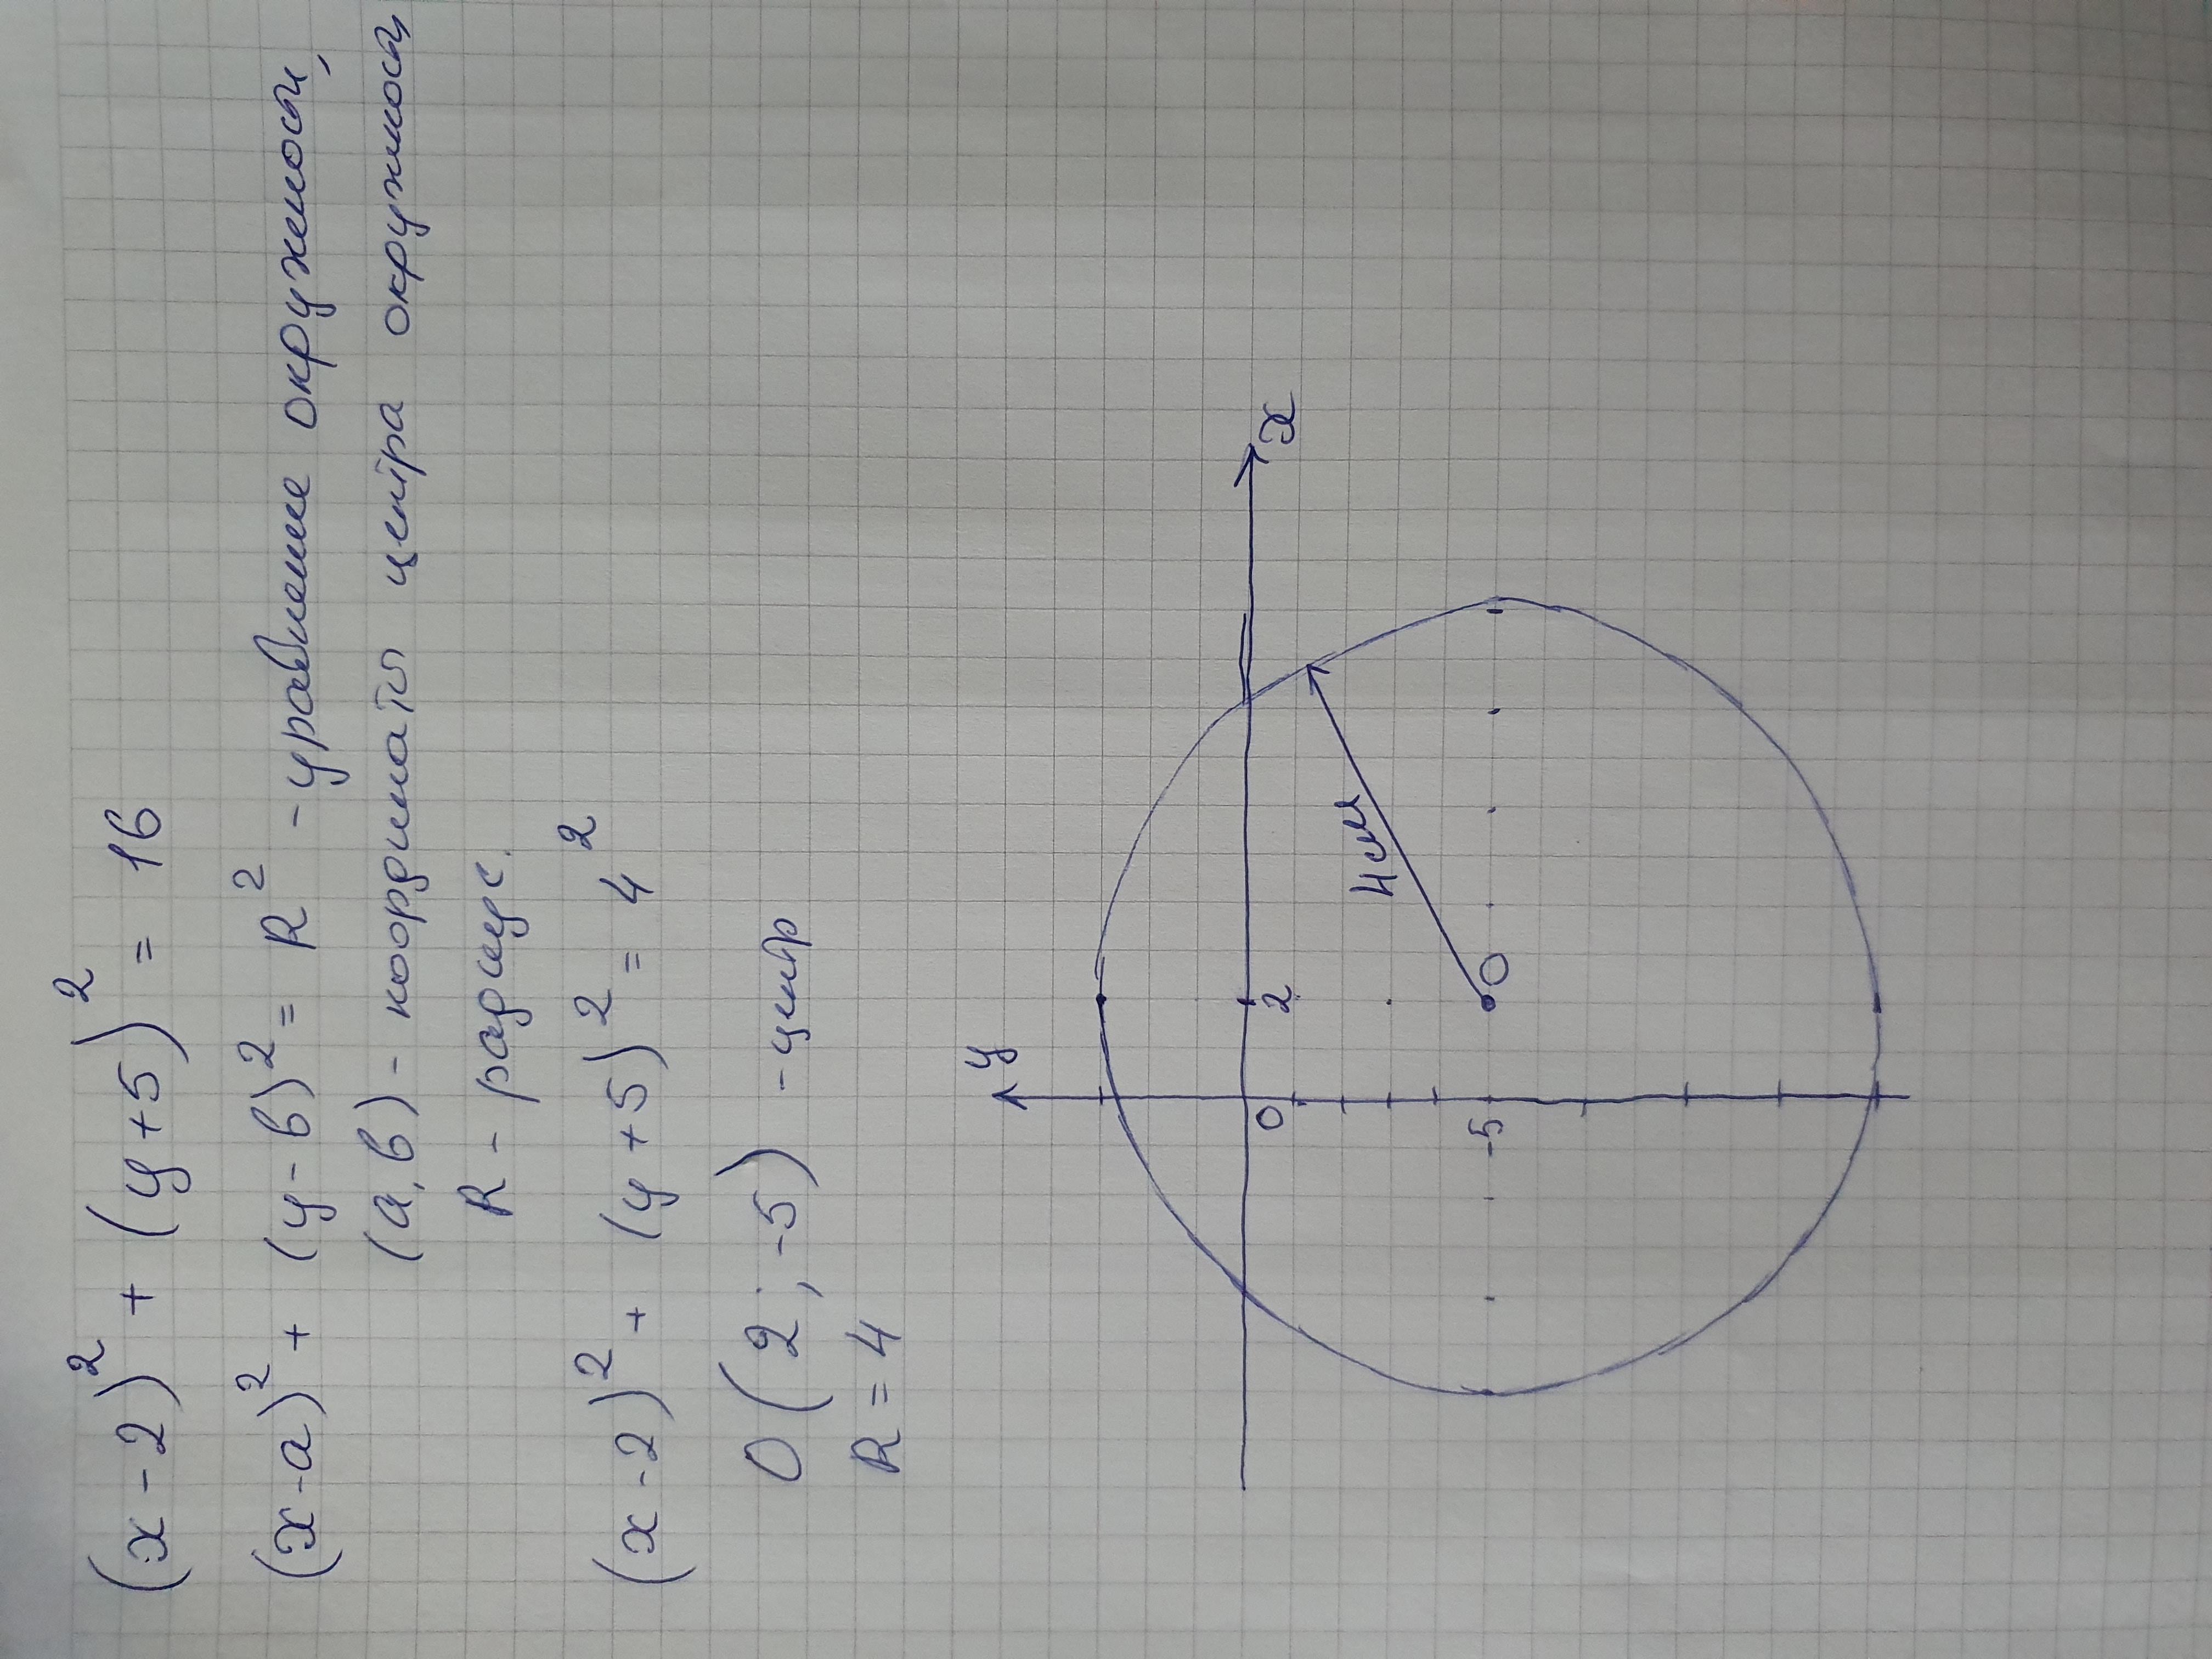 (x - 2)² + (y + 5)² = 16
(x - a)² + (y - в)² = R² - уравнение окружности,
(a, в) - координаты центра окружности,
R - радиус.
(x - 2)² + (y + 5)² = 4²
O (2; -5) - центр
R = 4
y
x
0
2
4 см
-5
O